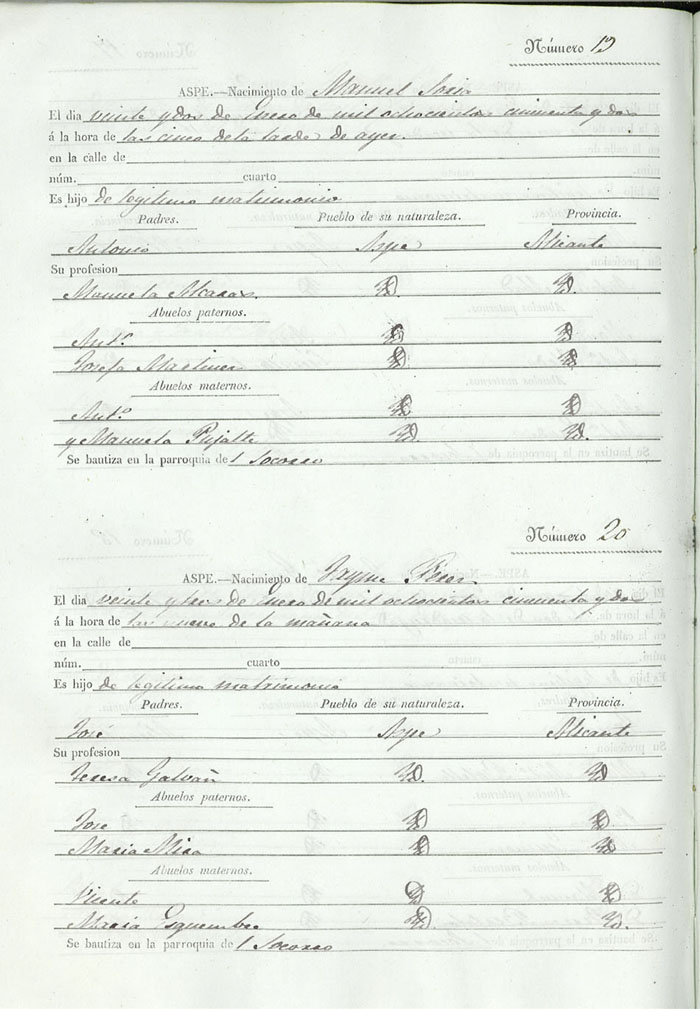 Número 19
ASPE.—Nacimiento de Manuel Soria
El dia veinte y dos de Enero de mil ochocientos cincuenta y dos
á la hora de las cinco de la tarde de ayer.
en la calle de
núm. cuarto
Es hijo de legitimo matrimonio
Padres. Pueblo de su naturaleza. Provincia.
Antonio Aspe Alicante
Su profesion
Manuela Alcaraz. D. D.
Abuelos paternos.
Antº D. D.
Josefa Martinez D. D.
Abuelos maternos.
Antº D. D.
y Manuela Pujalte D. D.
Se bautiza en la parroquia del Socorro
Número 20
ASPE.—Nacimiento de Jayme Perez.
El dia veinte y tres de Enero de mil ochocientos cincuenta y dos
á la hora de las nueve de la mañana
en la calle de
núm. cuarto
Es hijo de legitimo matrimonio
Padres. Pueblo de su naturaleza. Provincia.
José Aspe Alicante
Su profesion
Teresa Galvañ D. D.
Abuelos paternos.
Jose D. D.
Maria Mira D. D.
Abuelos maternos.
Vicente D. D.
Maria Esquembre D. D.
Se bautiza en la parroquia del Socorro